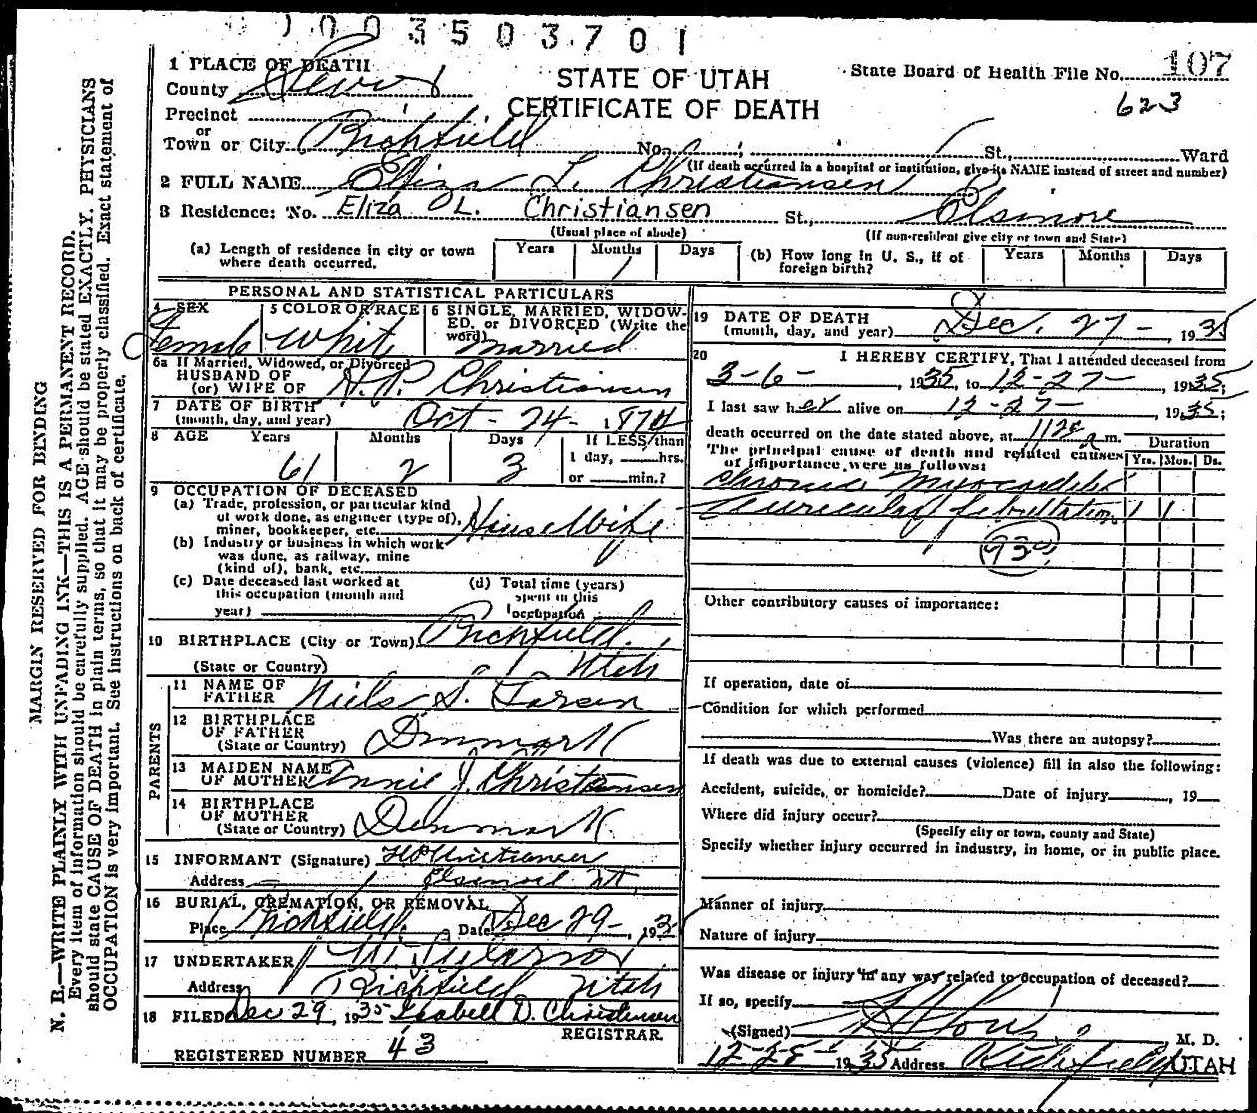 0003503701
1 PLACE OF DEATH
County Sevier
STATE OF UTAH
CERTIFICATE OF DEATH
State Board of Health File No. 107
623
Precinct
or
Town or City Richfield No. St., Ward
(If death occurred in a hospital or institution, give its NAME instead of street and number)
2 FULL NAME Eliza L. Christiansen
3 Residence: No. Eliza L. Christiansen St., Elsinore
(Usual place of abode) (If non-resident give city or town and State)
(a) Length of residence in city or town where death occurred. Years Months 1 Days
(b) How long in U. S., if of foreign birth? Years Months Days
PERSONAL AND STATISTICAL PARTICULARS
4 SEX Female
5 COLOR OR RACE White
6 SINGLE, MARRIED, WIDOWED, or DIVORCED (Write the word) Married
6a If Married, Widowed, or Divorced
HUSBAND OF
(or) WIFE OF H.P. Christiansen
7 DATE OF BIRTH
(month, day, and year) Oct - 24 - 1874
8 AGE Years 61 Months 2 Days 3 If LESS than 1 day, hrs. or min.?
9 OCCUPATION OF DECEASED
(a) Trade, profession, or particular kind of work done, as engineer (type of), miner, bookkeeper, etc. House Wife
(b) Industry or business in which work was done, as railway, mine (kind of), bank, etc.
(c) Date deceased last worked at this occupation (month and year)
(d) Total time (years) spent in this occupation
10 BIRTHPLACE (City or Town) Richfield
(State or Country) Utah
PARENTS
11 NAME OF FATHER Niels S. Larsen
12 BIRTHPLACE OF FATHER
(State or Country) Denmark
13 MAIDEN NAME OF MOTHER Annie J. Christensen
14 BIRTHPLACE OF MOTHER
(State or Country) Denmark
15 INFORMANT (Signature) HP Christiansen
Address Elsinore Ut.
16 BURIAL, CREMATION, OR REMOVAL
Place Richfield Date Dec 29 - 1935
17 UNDERTAKER
Address Richfield Utah
18 FILED Dec 29, 1935 Isabell D. Christensen
REGISTRAR
REGISTERED NUMBER 43
19 DATE OF DEATH
(month, day, and year) Dec. 27 - 1935
20 I HEREBY CERTIFY, That I attended deceased from
3-6-, 1935, to 12-27-, 1935;
I last saw her alive on 12-27-, 1935;
death occurred on the date stated above, at m.
The principal cause of death and related causes of importance were as follows: Duration Yrs. Mos. Ds.
Chronic Myocarditis
Auricular fibrillation 1 1
930
Other contributory causes of importance:
If operation, date of
Condition for which performed
Was there an autopsy?
If death was due to external causes (violence) fill in also the following:
Accident, suicide, or homicide? Date of injury, 19
Where did injury occur?
(Specify city or town, county and State)
Specify whether injury occurred in industry, in home, or in public place.
Manner of injury
Nature of injury
Was disease or injury in any way related to occupation of deceased?
If so, specify
(Signed) M. D.
12-28-1935 Address Richfield UTAH
MARGIN RESERVED FOR BINDING
N. B.—WRITE PLAINLY WITH UNFADING INK—THIS IS A PERMANENT RECORD.
Every item of information should be carefully supplied. AGE should be stated EXACTLY. PHYSICIANS
should state CAUSE OF DEATH in plain terms, so that it may be properly classified. Exact statement of
OCCUPATION is very important. See instructions on back of certificate.